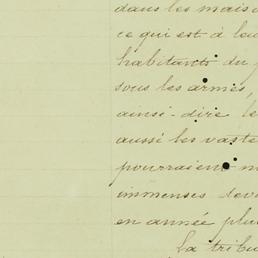 dans les mais
ce qui est à leu
habitants du
sous les armes,
ainsi-dire le
aussi les vaste
pourraient
immenses
en année plu
la tribu